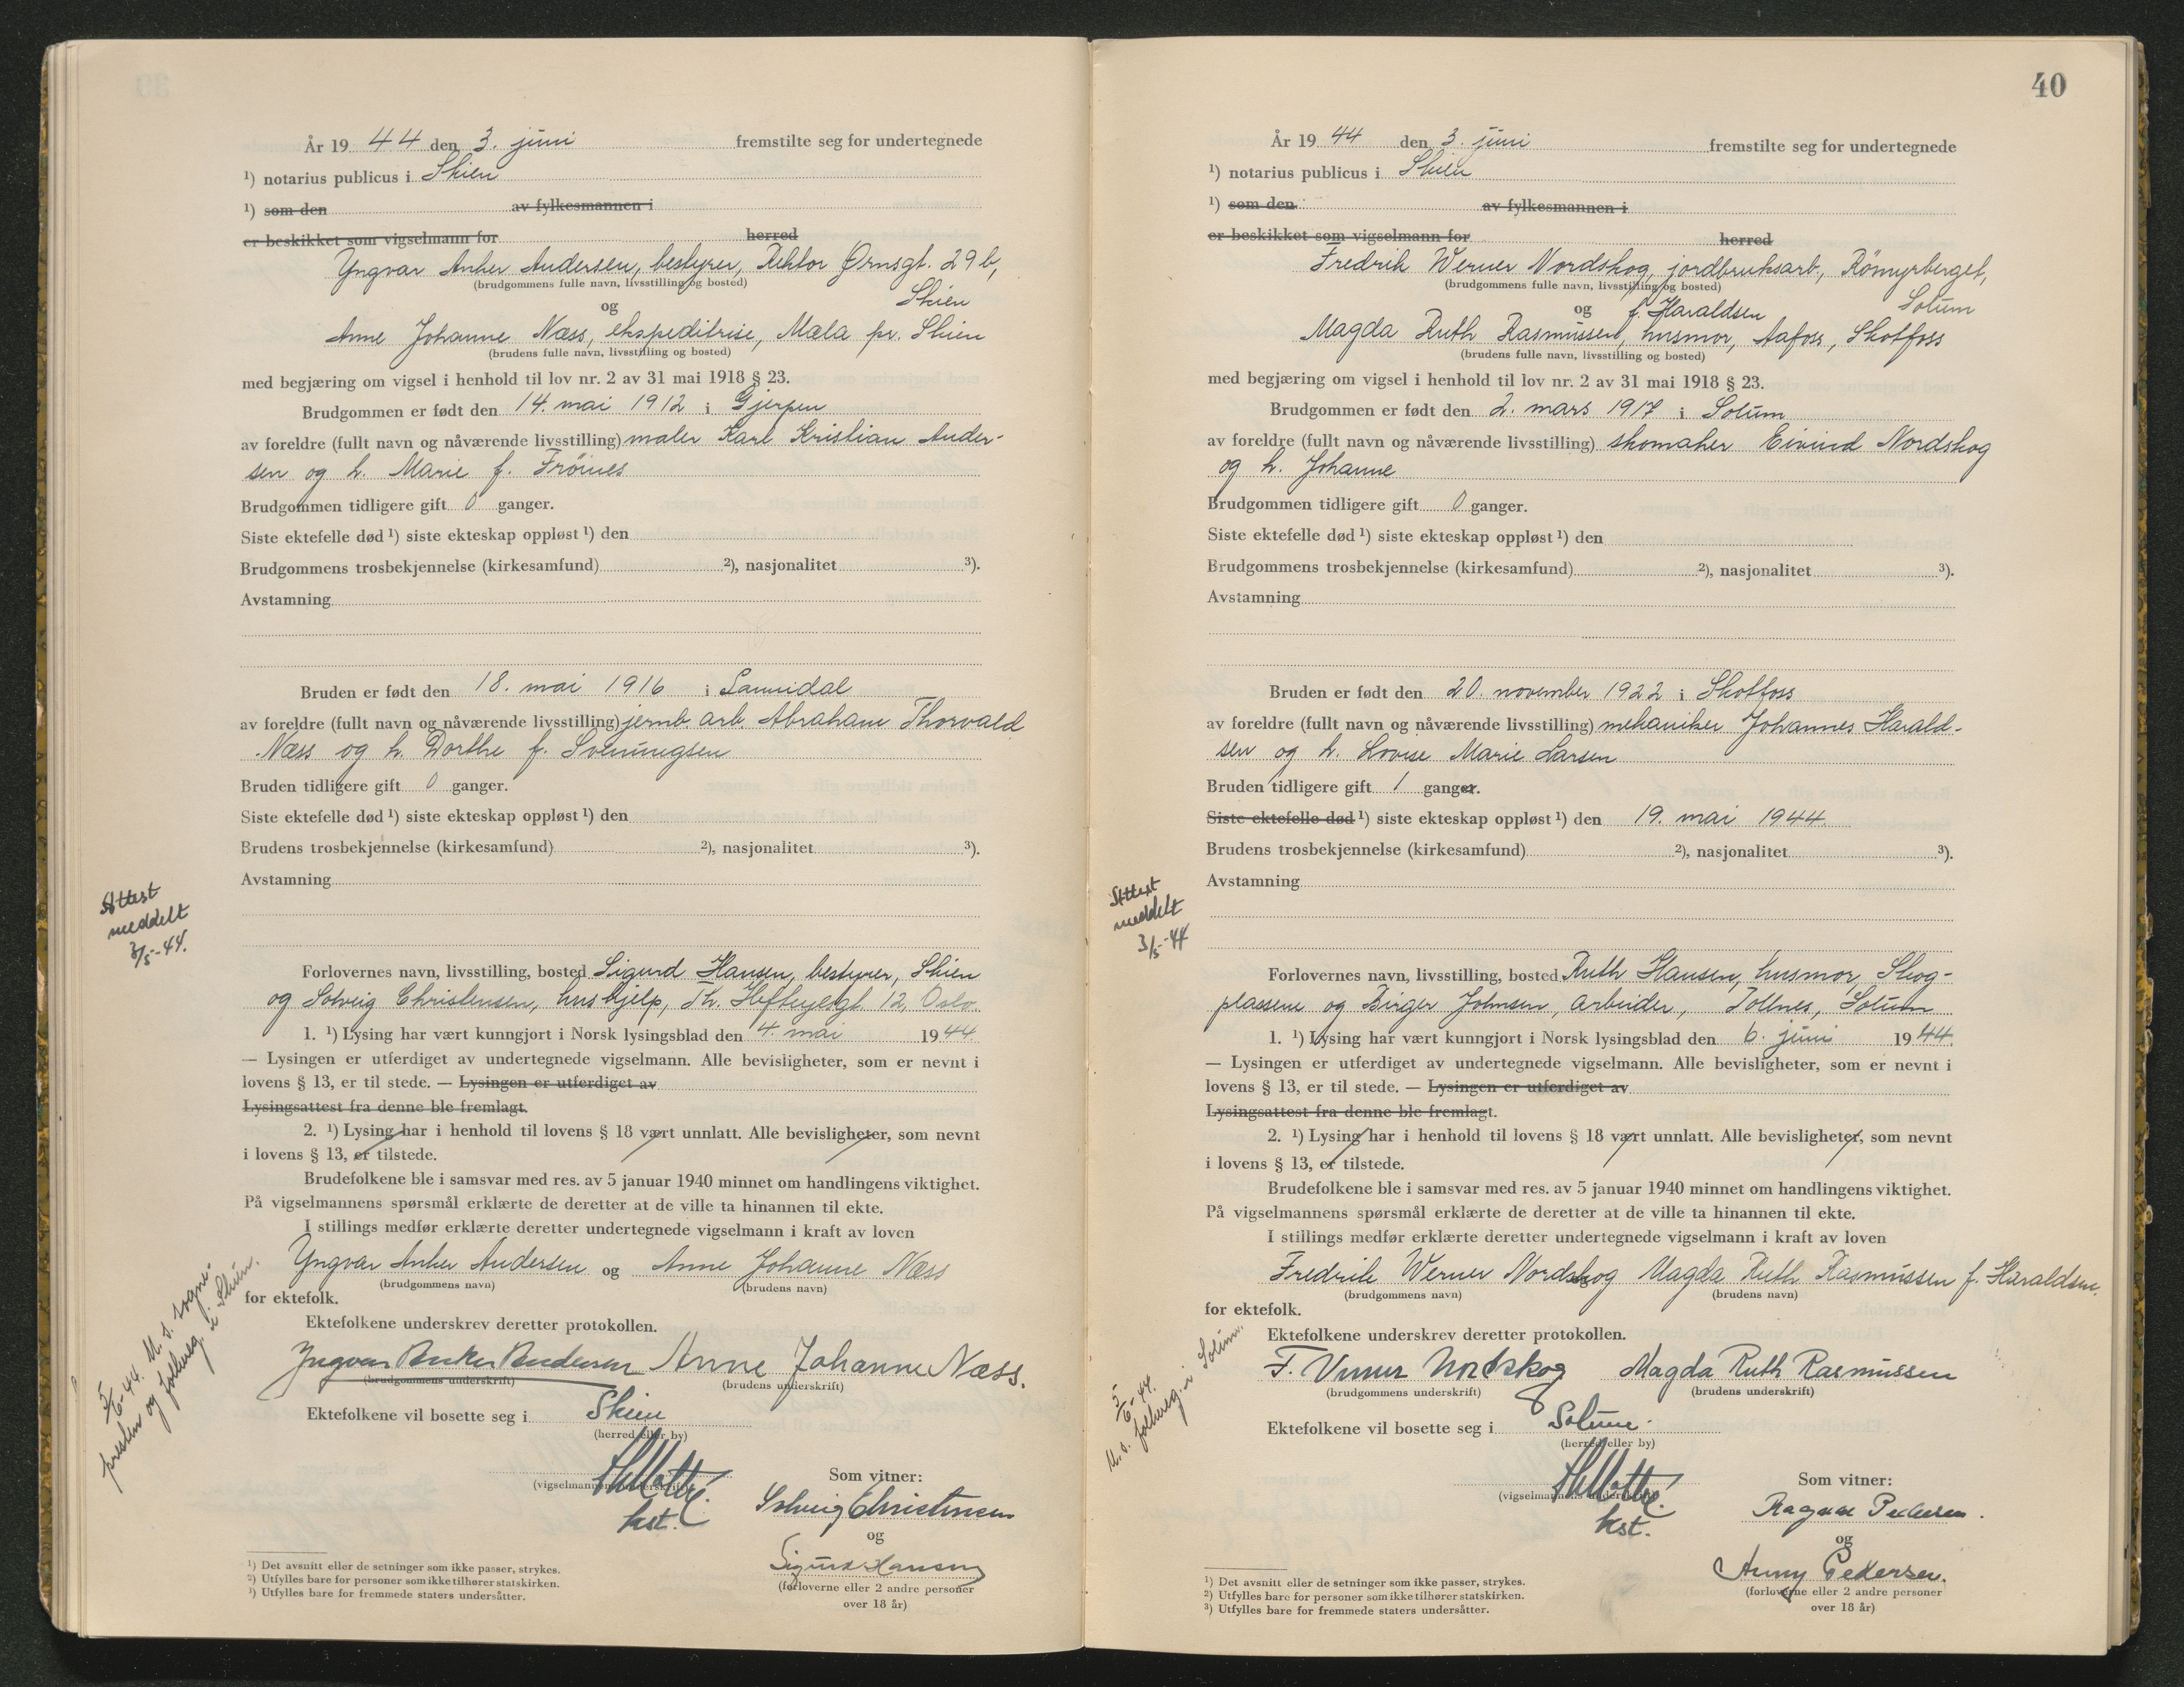 År 19 44 den 3. juni fremstilte seg for undertegnede
¹) notarius publicus i Skien
¹) som den av fylkesmannen i
er beskikket som vigselmann for herred
Yngvar Anker Andersen, bestyrer, Rektor Ørnsgt. 29 b,
(brudgommens fulle navn, livsstilling og bosted)
Skien
og
Anne Johanne Næss, ekspeditrise, Mæla pr. Skien
(brudens fulle navn, livsstilling og bosted)
med begjæring om vigsel i henhold til lov nr. 2 av 31 mai 1918 § 23.
Brudgommen er født den 14. mai 1912 i Gjerpen
av foreldre (fullt navn og nåværende livsstilling) maler Karl Kristian Ander-
sen og h. Marie f. Tröines
Brudgommen tidligere gift 0 ganger.
Siste ektefelle død ¹) siste ekteskap oppløst ¹) den
Brudgommens trosbekjennelse (kirkesamfund) ²), nasjonalitet ³).
Avstamning
Bruden er født den 18. mai 1916 i Sannidal
av foreldre (fullt navn og nåværende livsstilling) jernb. arb. Abraham Thorvald
Næss og h. Dorthe f. Svenungsen
Bruden tidligere gift 0 ganger.
Siste ektefelle død ¹) siste ekteskap oppløst ¹) den
Brudens trosbekjennelse (kirkesamfund) ²), nasjonalitet ³).
Avstamning
Attest
meddelt
3/5-44.
Forlovernes navn, livsstilling, bosted Sigurd Hansen, bestyrer, Skien
og Solveig Christensen, hushjelp, Th. Heftyesgt. 12, Oslo.
1. ¹) Lysing har vært kunngjort i Norsk lysingsblad den 4. mai 1944
— Lysingen er utferdiget av undertegnede vigselmann. Alle bevisligheter, som er nevnt i
lovens § 13, er til stede. — Lysingen er utferdiget av
Lysingsattest fra denne ble fremlagt.
2. ¹) Lysing har i henhold til lovens § 18 vært unnlatt. Alle bevisligheter, som nevnt
i lovens § 13, er tilstede.
Brudefolkene ble i samsvar med res. av 5 januar 1940 minnet om handlingens viktighet.
På vigselmannens spørsmål erklærte de deretter at de ville ta hinannen til ekte.
I stillings medfør erklærte deretter undertegnede vigselmann i kraft av loven
Yngvar Anker Andersen og Anne Johanne Næss
(brudgommens navn) (brudens navn)
for ektefolk.
Ektefolkene underskrev deretter protokollen.
Yngvar Anker Andersen Anne Johanne Næss.
(brudgommens underskrift) (brudens underskrift)
5/6-44. U. s. sogne-
presten og folkereg. i Skien.
Ektefolkene vil bosette seg i Skien
(herred eller by)
(vigselmannens underskrift)
kst.
Som vitner:
Solveig Christensen
og
Sigurd Hansen
(forloverne eller 2 andre personer
over 18 år)
¹) Det avsnitt eller de setninger som ikke passer, strykes.
²) Utfylles bare for personer som ikke tilhører statskirken.
³) Utfylles bare for fremmede staters undersåtter.
40
År 19 44 den 3. juni fremstilte seg for undertegnede
¹) notarius publicus i Skien
¹) som den av fylkesmannen i
er beskikket som vigselmann for herred
Fredrik Werner Nordskog, jordbruksarb., Römyrberget,
(brudgommens fulle navn, livsstilling og bosted)
Solum
og f. Haraldsen
Magda Ruth Rasmussen, husmor, Aafoss, Skotfoss
(brudens fulle navn, livsstilling og bosted)
med begjæring om vigsel i henhold til lov nr. 2 av 31 mai 1918 § 23.
Brudgommen er født den 2. mars 1917 i Solum
av foreldre (fullt navn og nåværende livsstilling) skomaker Eivind Nordskog
og h. Johanne
Brudgommen tidligere gift 0 ganger.
Siste ektefelle død ¹) siste ekteskap oppløst ¹) den
Brudgommens trosbekjennelse (kirkesamfund) ²), nasjonalitet ³).
Avstamning
Bruden er født den 20. november 1922 i Skotfoss
av foreldre (fullt navn og nåværende livsstilling) mekaniker Johannes Harald-
sen og h. Lovise Marie Larsen
Bruden tidligere gift 1 ganger.
Siste ektefelle død ¹) siste ekteskap oppløst ¹) den 19. mai 1944
Brudens trosbekjennelse (kirkesamfund) ²), nasjonalitet ³).
Avstamning
Attest
meddelt
3/5-44
Forlovernes navn, livsstilling, bosted Ruth Hansen, husmor, Skog-
plassene og Birger Johnsen, arbeider, Tollnes, Solum
1. ¹) Lysing har vært kunngjort i Norsk lysingsblad den 6. juni 1944.
— Lysingen er utferdiget av undertegnede vigselmann. Alle bevisligheter, som er nevnt i
lovens § 13, er til stede. — Lysingen er utferdiget av
Lysingsattest fra denne ble fremlagt.
2. ¹) Lysing har i henhold til lovens § 18 vært unnlatt. Alle bevisligheter, som nevnt
i lovens § 13, er tilstede.
Brudefolkene ble i samsvar med res. av 5 januar 1940 minnet om handlingens viktighet.
På vigselmannens spørsmål erklærte de deretter at de ville ta hinannen til ekte.
I stillings medfør erklærte deretter undertegnede vigselmann i kraft av loven
Fredrik Werner Nordskog Magda Ruth Rasmussen f. Haraldsen.
(brudgommens navn) (brudens navn)
for ektefolk.
Ektefolkene underskrev deretter protokollen.
F. Verner Nordskog Magda Ruth Rasmussen
(brudgommens underskrift) (brudens underskrift)
5/6-44.
U. s. folkereg. i Solum.
Ektefolkene vil bosette seg i Solum
(herred eller by)
(vigselmannens underskrift)
kst.
Som vitner:
Ragna Pedersen.
og
Anny Pedersen.
(forloverne eller 2 andre personer
over 18 år)
¹) Det avsnitt eller de setninger som ikke passer, strykes.
²) Utfylles bare for personer som ikke tilhører statskirken.
³) Utfylles bare for fremmede staters undersåtter.